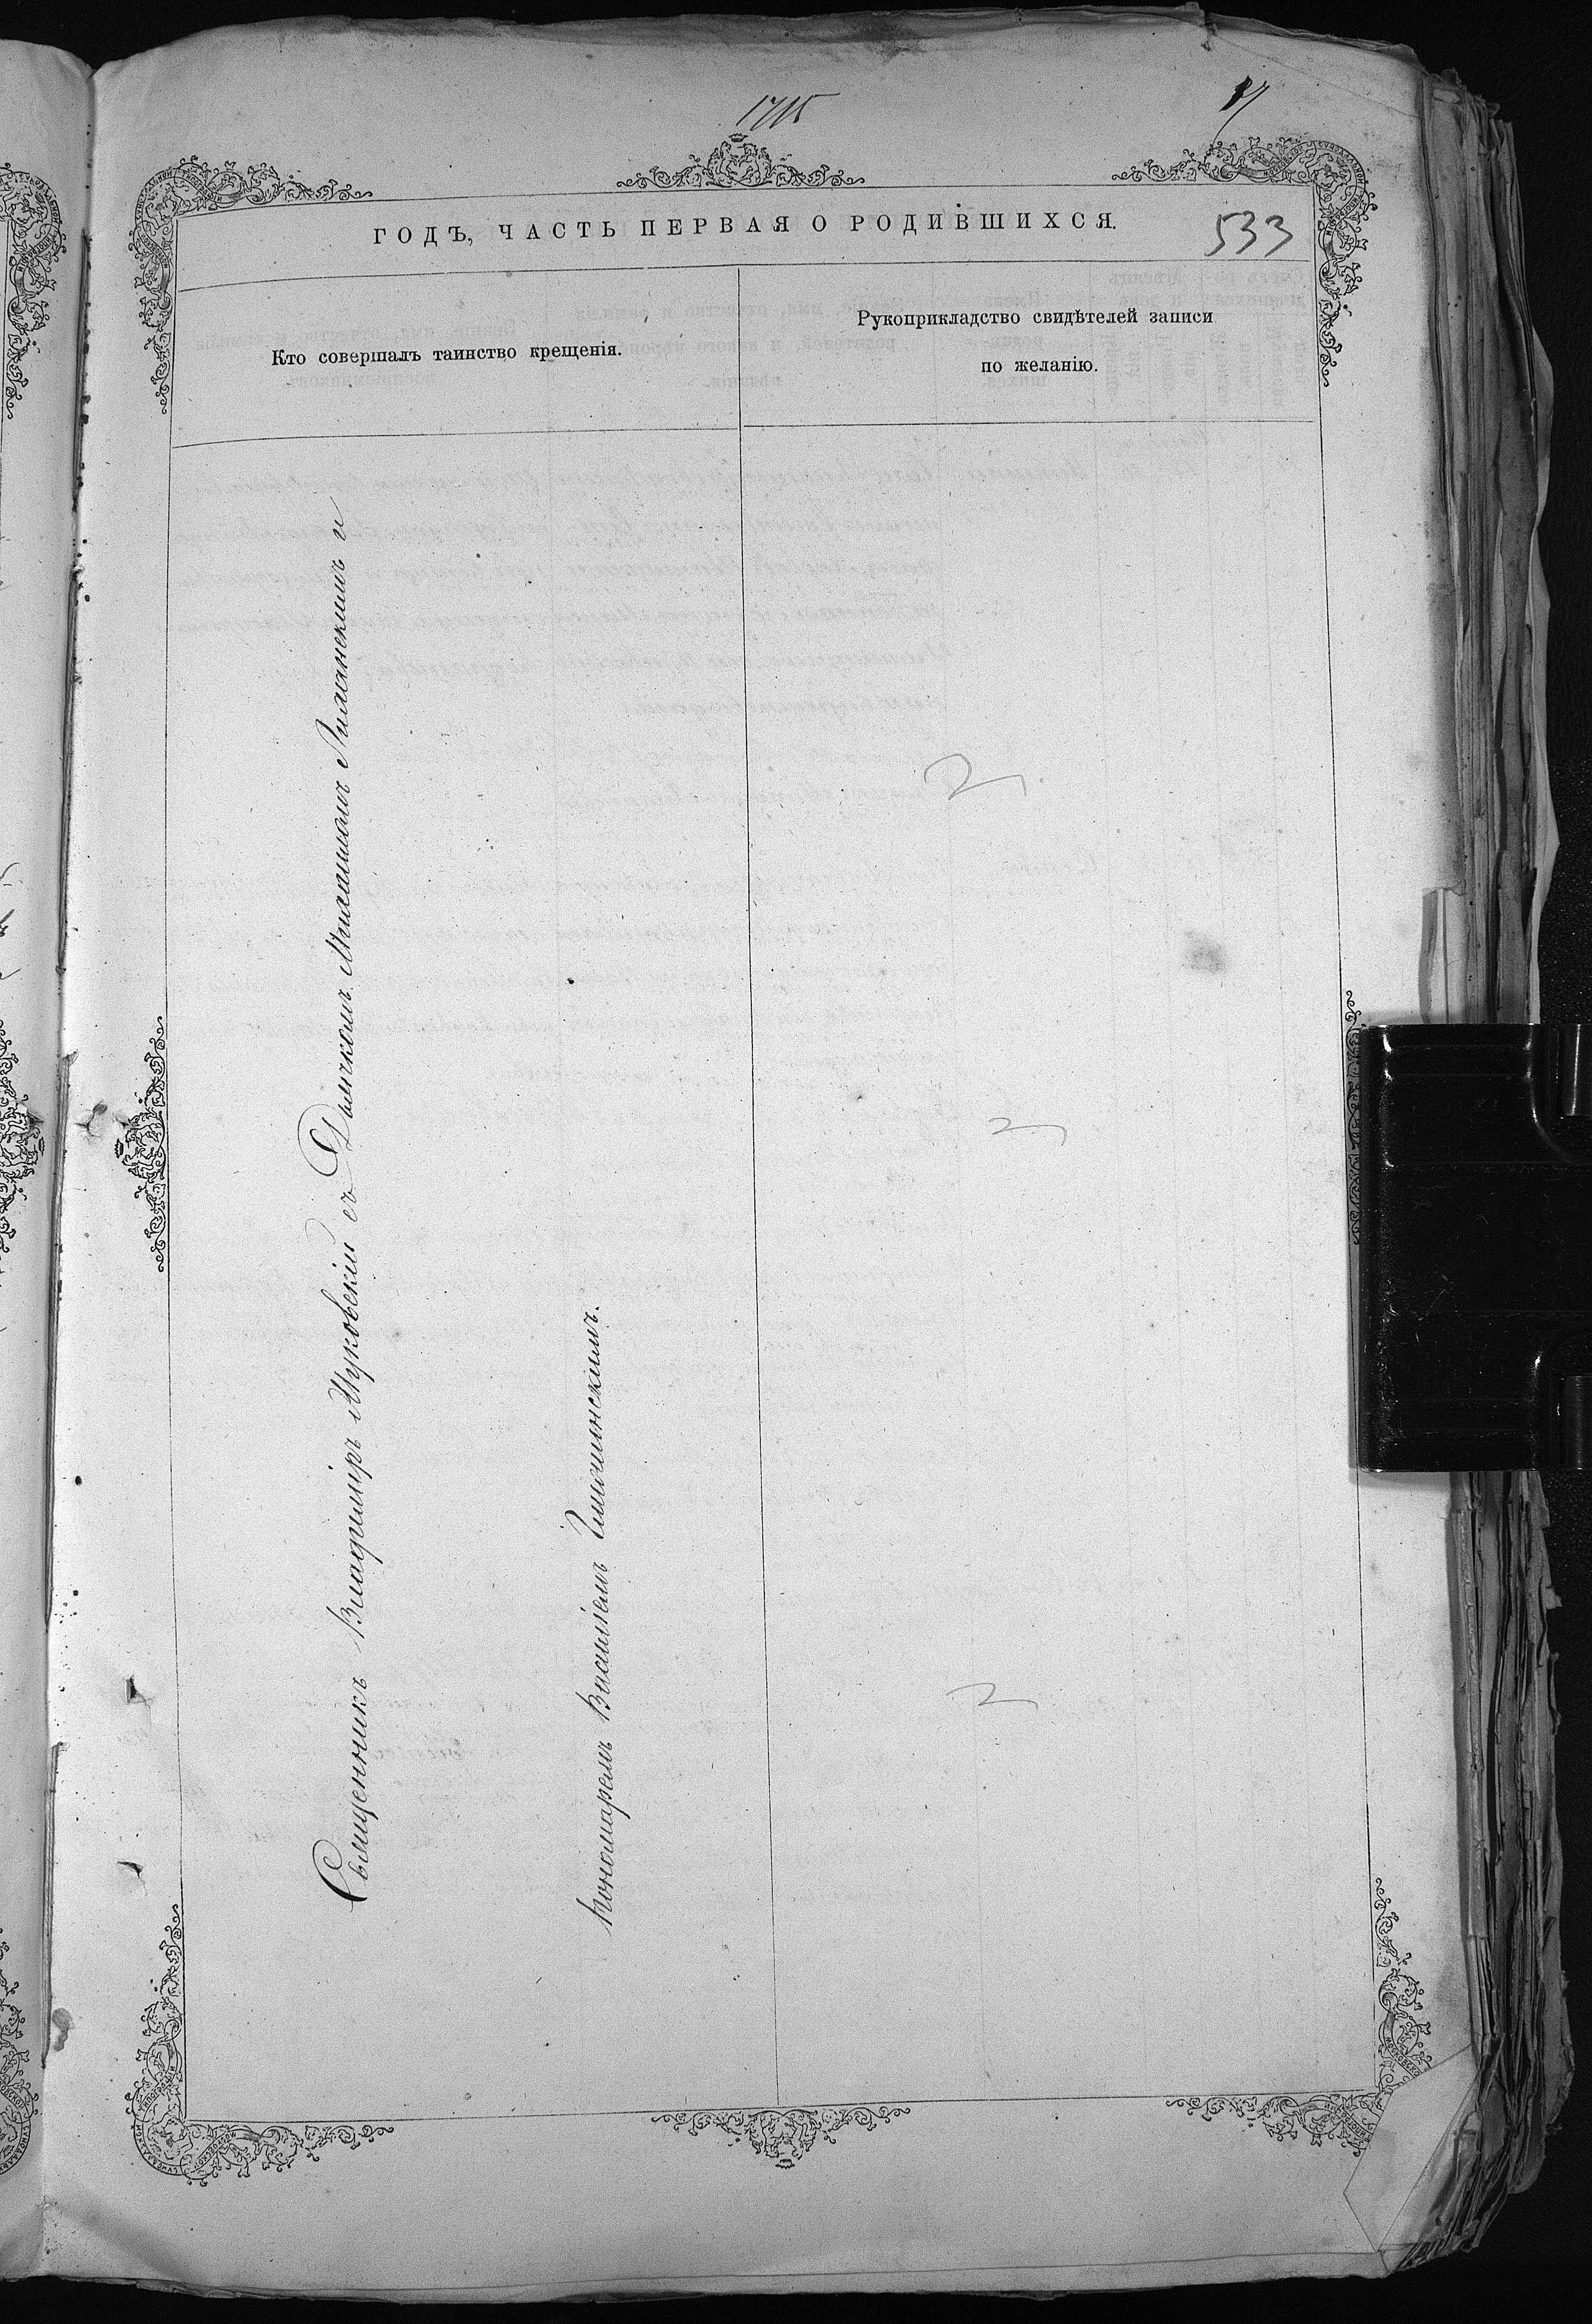 1715
17
ГОДЪ, ЧАСТЬ ПЕРВАЯ О РОДИВШИХСЯ.
533
Кто совершалъ таинство крещенія.
Рукоприкладство свидѣтелей записи
по желанію.
Священникъ Владиміръ Жуковскій съ Дьячкомъ Михаиломъ Лилянскимъ и
пономаремъ Василіемъ
2
2
2